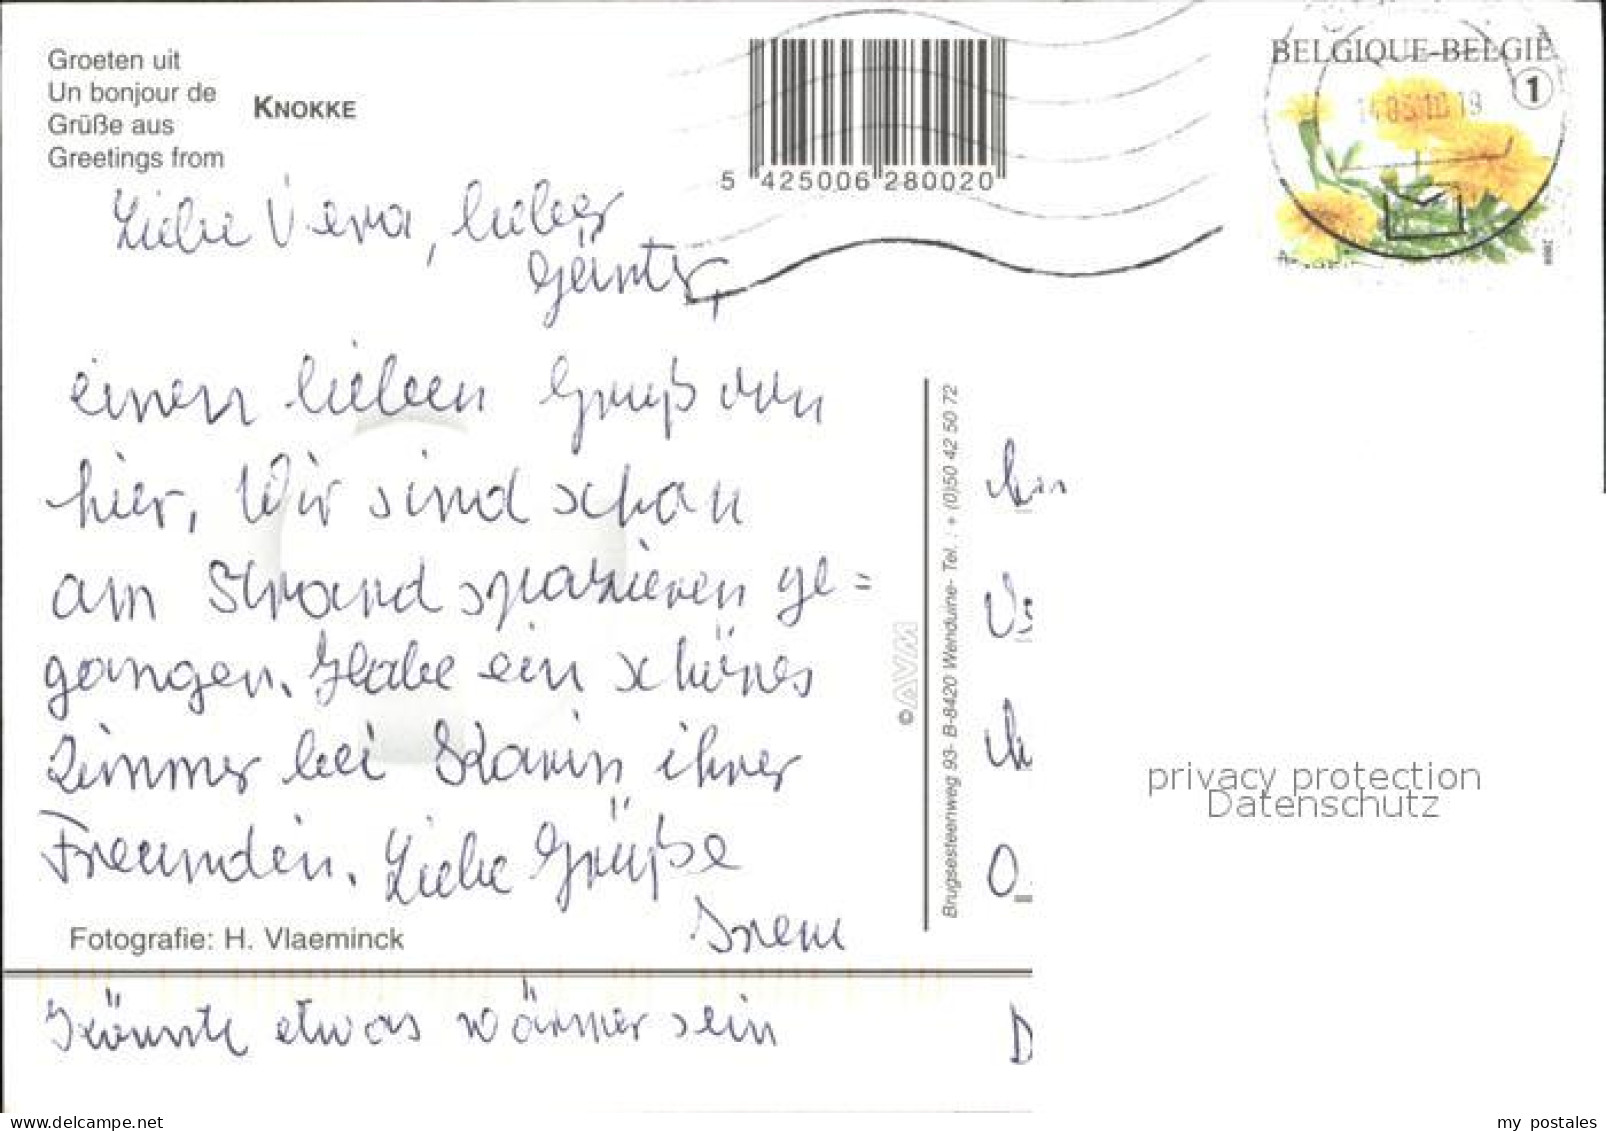 Groeten uit
Un bonjour de
Grüße aus
Greetings from
KNOKKE
5 425006 280020
BELGIQUE-BELGIË
1
Liebe Vera, lieber
Günter,
einen lieben Gruß von
hier, Wir sind schon
am Strand spazieren ge=
gangen. Habe ein schönes
Zimmer bei Karin ihrer
Freundin. Liebe Grüße
Irene
Fotografie: H. Vlaeminck
Könnte etwas wärmer sein
© AVM
Brugsesteenweg 93- B-8420 Wenduine- Tel. : + (0)50 42 50 72
privacy protection
Datenschutz
D
delcampe.net
my postales